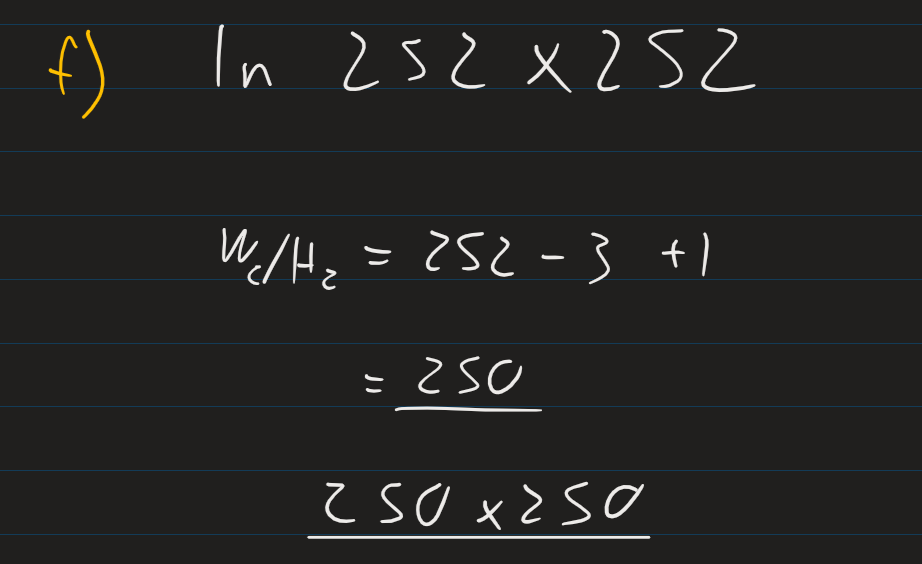 f) In 252 x 252
W₂/H₂ = 252 - 3 + 1
= 250
250 x 250